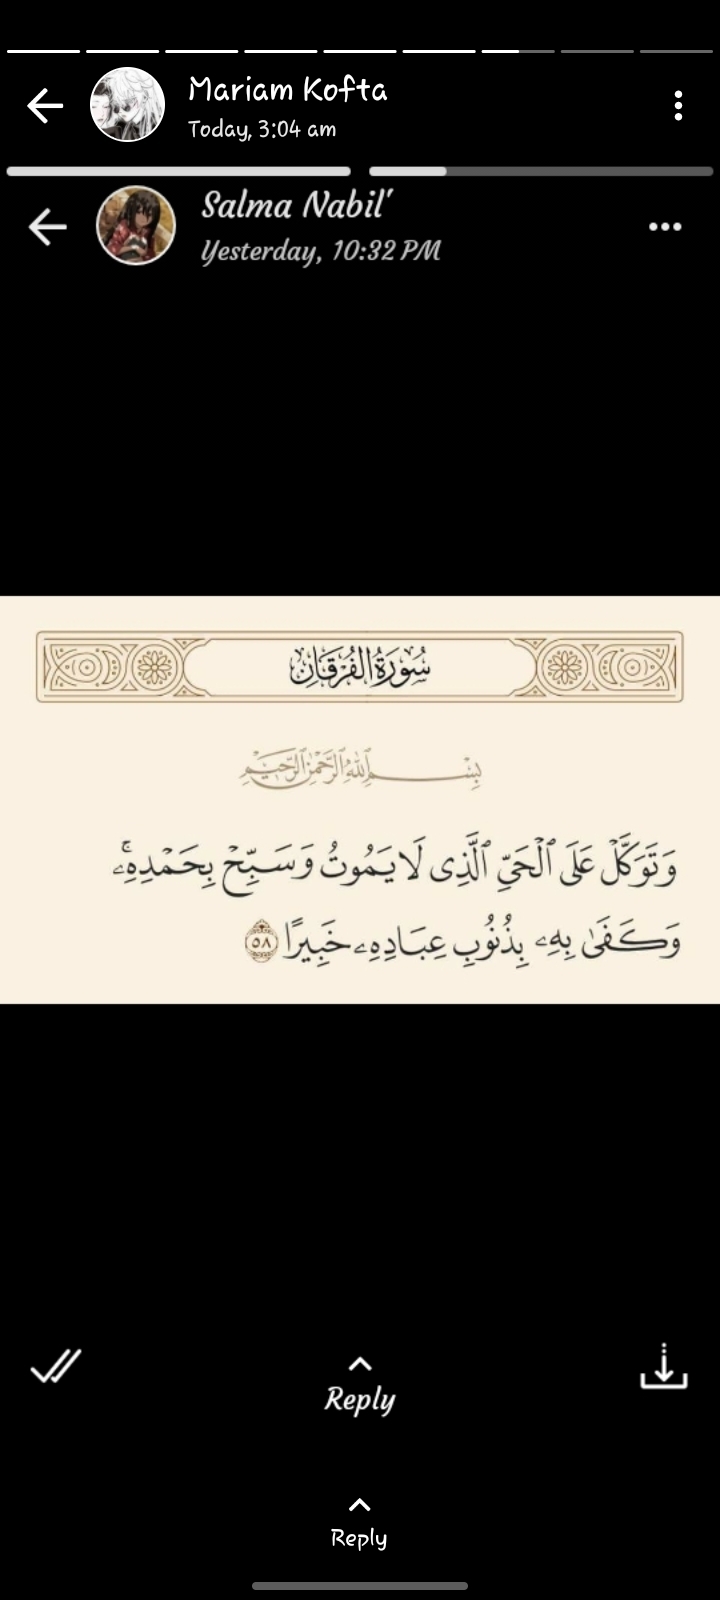 Mariam Kofta
Today, 3:04 am
Salma Nabil'
Yesterday, 10:32 PM
سُورَةُ الفُرْقَانِ
بِسْمِ ٱللَّهِ ٱلرَّحْمَٰنِ ٱلرَّحِيمِ
وَتَوَكَّلْ عَلَى ٱلْحَىِّ ٱلَّذِى لَا يَمُوتُ وَسَبِّحْ بِحَمْدِهِۦۚ
وَكَفَىٰ بِهِۦ بِذُنُوبِ عِبَادِهِۦ خَبِيرًا ٥٨
Reply
Reply